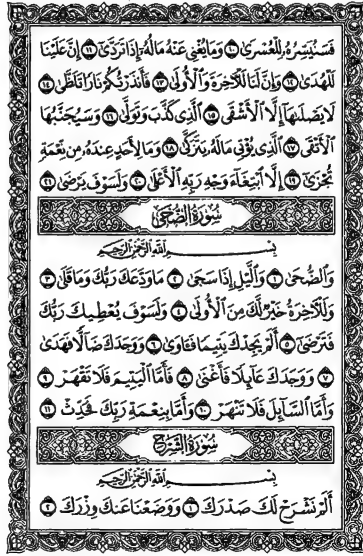 فَسَنُيَسِّرُهُۥ لِلۡعُسۡرَىٰ ١٠ وَمَا يُغۡنِي عَنۡهُ مَالُهُۥٓ إِذَا تَرَدَّىٰٓ ١١ إِنَّ عَلَيۡنَا
لَلۡهُدَىٰ ١٢ وَإِنَّ لَنَا لَلۡأٓخِرَةَ وَٱلۡأُولَىٰ ١٣ فَأَنذَرۡتُكُمۡ نَارٗا تَلَظَّىٰ ١٤
لَا يَصۡلَىٰهَآ إِلَّا ٱلۡأَشۡقَى ١٥ ٱلَّذِي كَذَّبَ وَتَوَلَّىٰ ١٦ وَسَيُجَنَّبُهَا
ٱلۡأَتۡقَى ١٧ ٱلَّذِي يُؤۡتِي مَالَهُۥ يَتَزَكَّىٰ ١٨ وَمَا لِأَحَدٍ عِندَهُۥ مِن نِّعۡمَةٖ
تُجۡزَىٰٓ ١٩ إِلَّا ٱبۡتِغَآءَ وَجۡهِ رَبِّهِ ٱلۡأَعۡلَىٰ ٢٠ وَلَسَوۡفَ يَرۡضَىٰ ٢١
سُورَةُ الضُّحَى
بِسۡمِ ٱللَّهِ ٱلرَّحۡمَٰنِ ٱلرَّحِيمِ
وَٱلضُّحَىٰ ١ وَٱلَّيۡلِ إِذَا سَجَىٰ ٢ مَا وَدَّعَكَ رَبُّكَ وَمَا قَلَىٰ ٣
وَلَلۡأٓخِرَةُ خَيۡرٞ لَّكَ مِنَ ٱلۡأُولَىٰ ٤ وَلَسَوۡفَ يُعۡطِيكَ رَبُّكَ
فَتَرۡضَىٰٓ ٥ أَلَمۡ يَجِدۡكَ يَتِيمٗا فَـَٔاوَىٰ ٦ وَوَجَدَكَ ضَآلّٗا فَهَدَىٰ
٧ وَوَجَدَكَ عَآئِلٗا فَأَغۡنَىٰ ٨ فَأَمَّا ٱلۡيَتِيمَ فَلَا تَقۡهَرۡ ٩
وَأَمَّا ٱلسَّآئِلَ فَلَا تَنۡهَرۡ ١٠ وَأَمَّا بِنِعۡمَةِ رَبِّكَ فَحَدِّثۡ ١١
سُورَةُ الشَّرۡحِ
بِسۡمِ ٱللَّهِ ٱلرَّحۡمَٰنِ ٱلرَّحِيمِ
أَلَمۡ نَشۡرَحۡ لَكَ صَدۡرَكَ ١ وَوَضَعۡنَا عَنكَ وِزۡرَكَ ٢